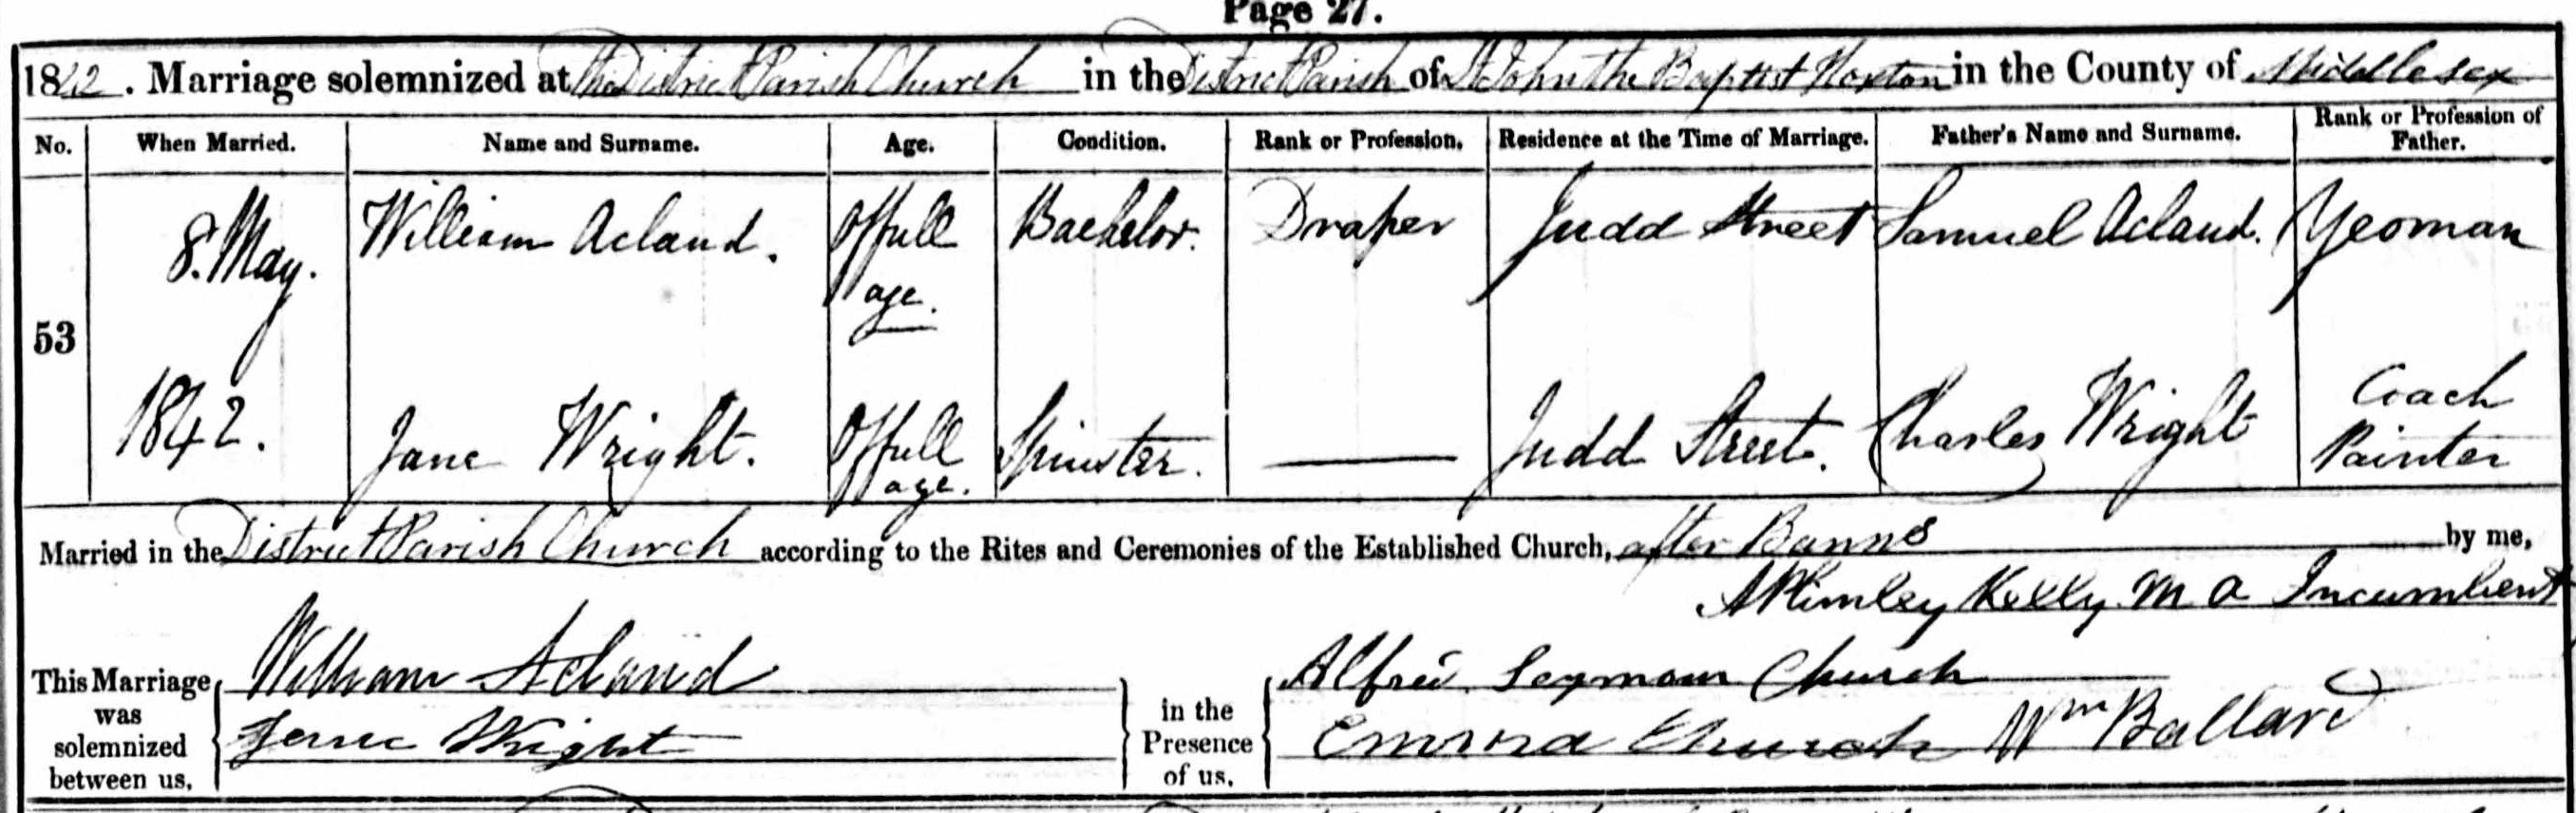 Page 27.
1842. Marriage solemnized at the District Parish Church in the District Parish of St John the Baptist Hoxton in the County of Middlesex
No. When Married. Name and Surname. Age. Condition. Rank or Profession. Residence at the Time of Marriage. Father's Name and Surname. Rank or Profession of Father.
53
8. May. William Acland. Of full age. Bachelor. Draper Judd Street Samuel Acland. Yeoman
1842. Jane Wright. Of full age. Spinster. Judd Street. Charles Wright Coach Painter
Married in the District Parish Church according to the Rites and Ceremonies of the Established Church, after Banns by me,
A P Kelly M A Incumbent
This Marriage was solemnized between us,
William Acland
Jane Wright
in the Presence of us.
Alfred Seymour Church
Emma Church Wm Ballard